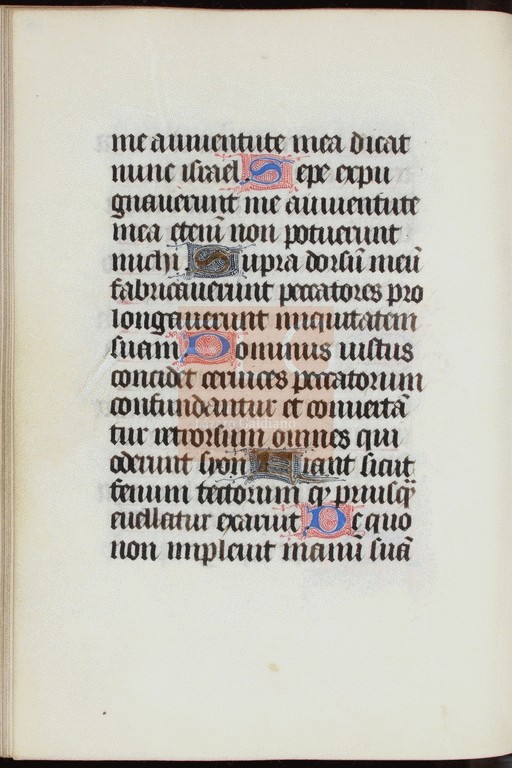 me a iuuentute mea dicat
nunc israel Sepe expu
gnauerunt me a iuuentute
mea eteni̅ non potuerunt
michi Supra dorsu̅ meu̅
fabricauerunt peccatores pro
longauerunt iniquitatem
suam Dominus iustus
concidet ceruices peccatorum
confundantur et conuerta̅
tur retrorsum omnes qui
oderunt syon Fiant sicut
fenum tectorum q̅ priusq̅
euellatur exaruit De quo
non impleuit manu̅ sua̅
Lázaro Galdiano